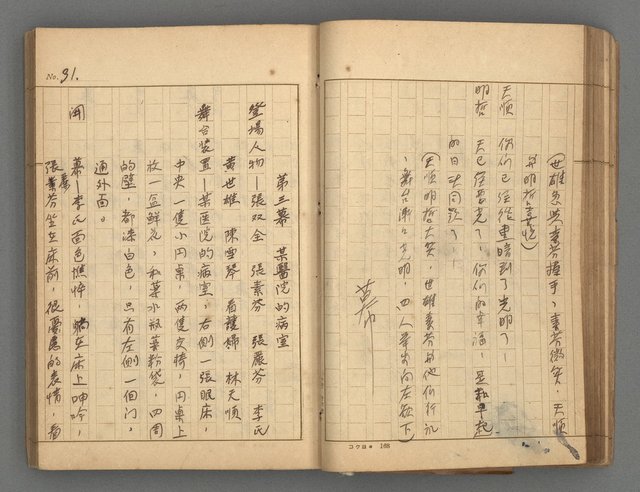 (世雄美與素芬握手,素芬微笑,天順
與明哲喜悅)
天順 你們已經從黑暗到了光明了!
明哲 天已經要光了!你們的幸福,是和早起
的日頭同款了!
(天順明哲大笑,世雄素芬與他們行礼
,舞台漸々光明,四人舉步向左欲下)
幕
コクヨ 168
No. 31.
第三幕 某醫院的病室
登場人物—張双全 張素芬 張麗芬 李氏
黃世雄 陳雪琴 看護婦 林天順
舞台裝置—某医院的病室,右側一張眠床,
中央一隻小円桌,兩隻交椅,円桌上
放一盆鮮花,和藥水瓶藥粉袋,四周
的壁,都漆白色,只有左側一個门,
通外面。
開 幕—李氏面色憔悴,躺在床上呻吟,
張素芬坐在床前,很憂愁的表情,看